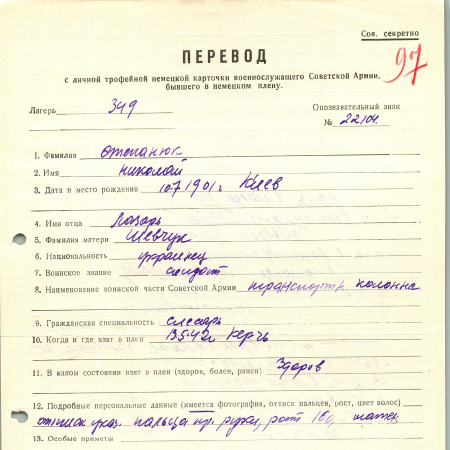 Сов. секретно
97
ПЕРЕВОД
с личной трофейной немецкой карточки военнослужащего Советской Армии,
бывшего в немецком плену.
Лагерь 349
Опознавательный знак
№ 22104.
1. Фамилия Степанюк
2. Имя николай
3. Дата и место рождения 10.7.1901г. Киев
4. Имя отца Лазарь
5. Фамилия матери Шевчук
6. Национальность украинец
7. Воинское звание солдат
8. Наименование воинской части Советской Армии транспортн. колонна
9. Гражданская специальность слесарь
10. Когда и где взят в плен 13.5.42г Керчь
11. В каком состоянии взят в плен (здоров, болен, ранен) Здоров
12. Подробные персональные данные (имеется фотография, оттиск пальцев, рост, цвет волос)
оттиск указ. пальца пр. руки, рост 160, шатен
13. Особые приметы